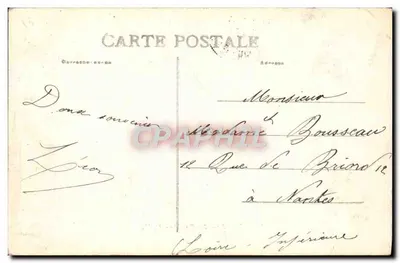 CARTE POSTALE
Correspondance
Adresse
Doux souvenir
Léon
Monsieur
et
Madame Bousseau
12 Rue de
à Nantes
Loire-Inférieure
CPAPHIL